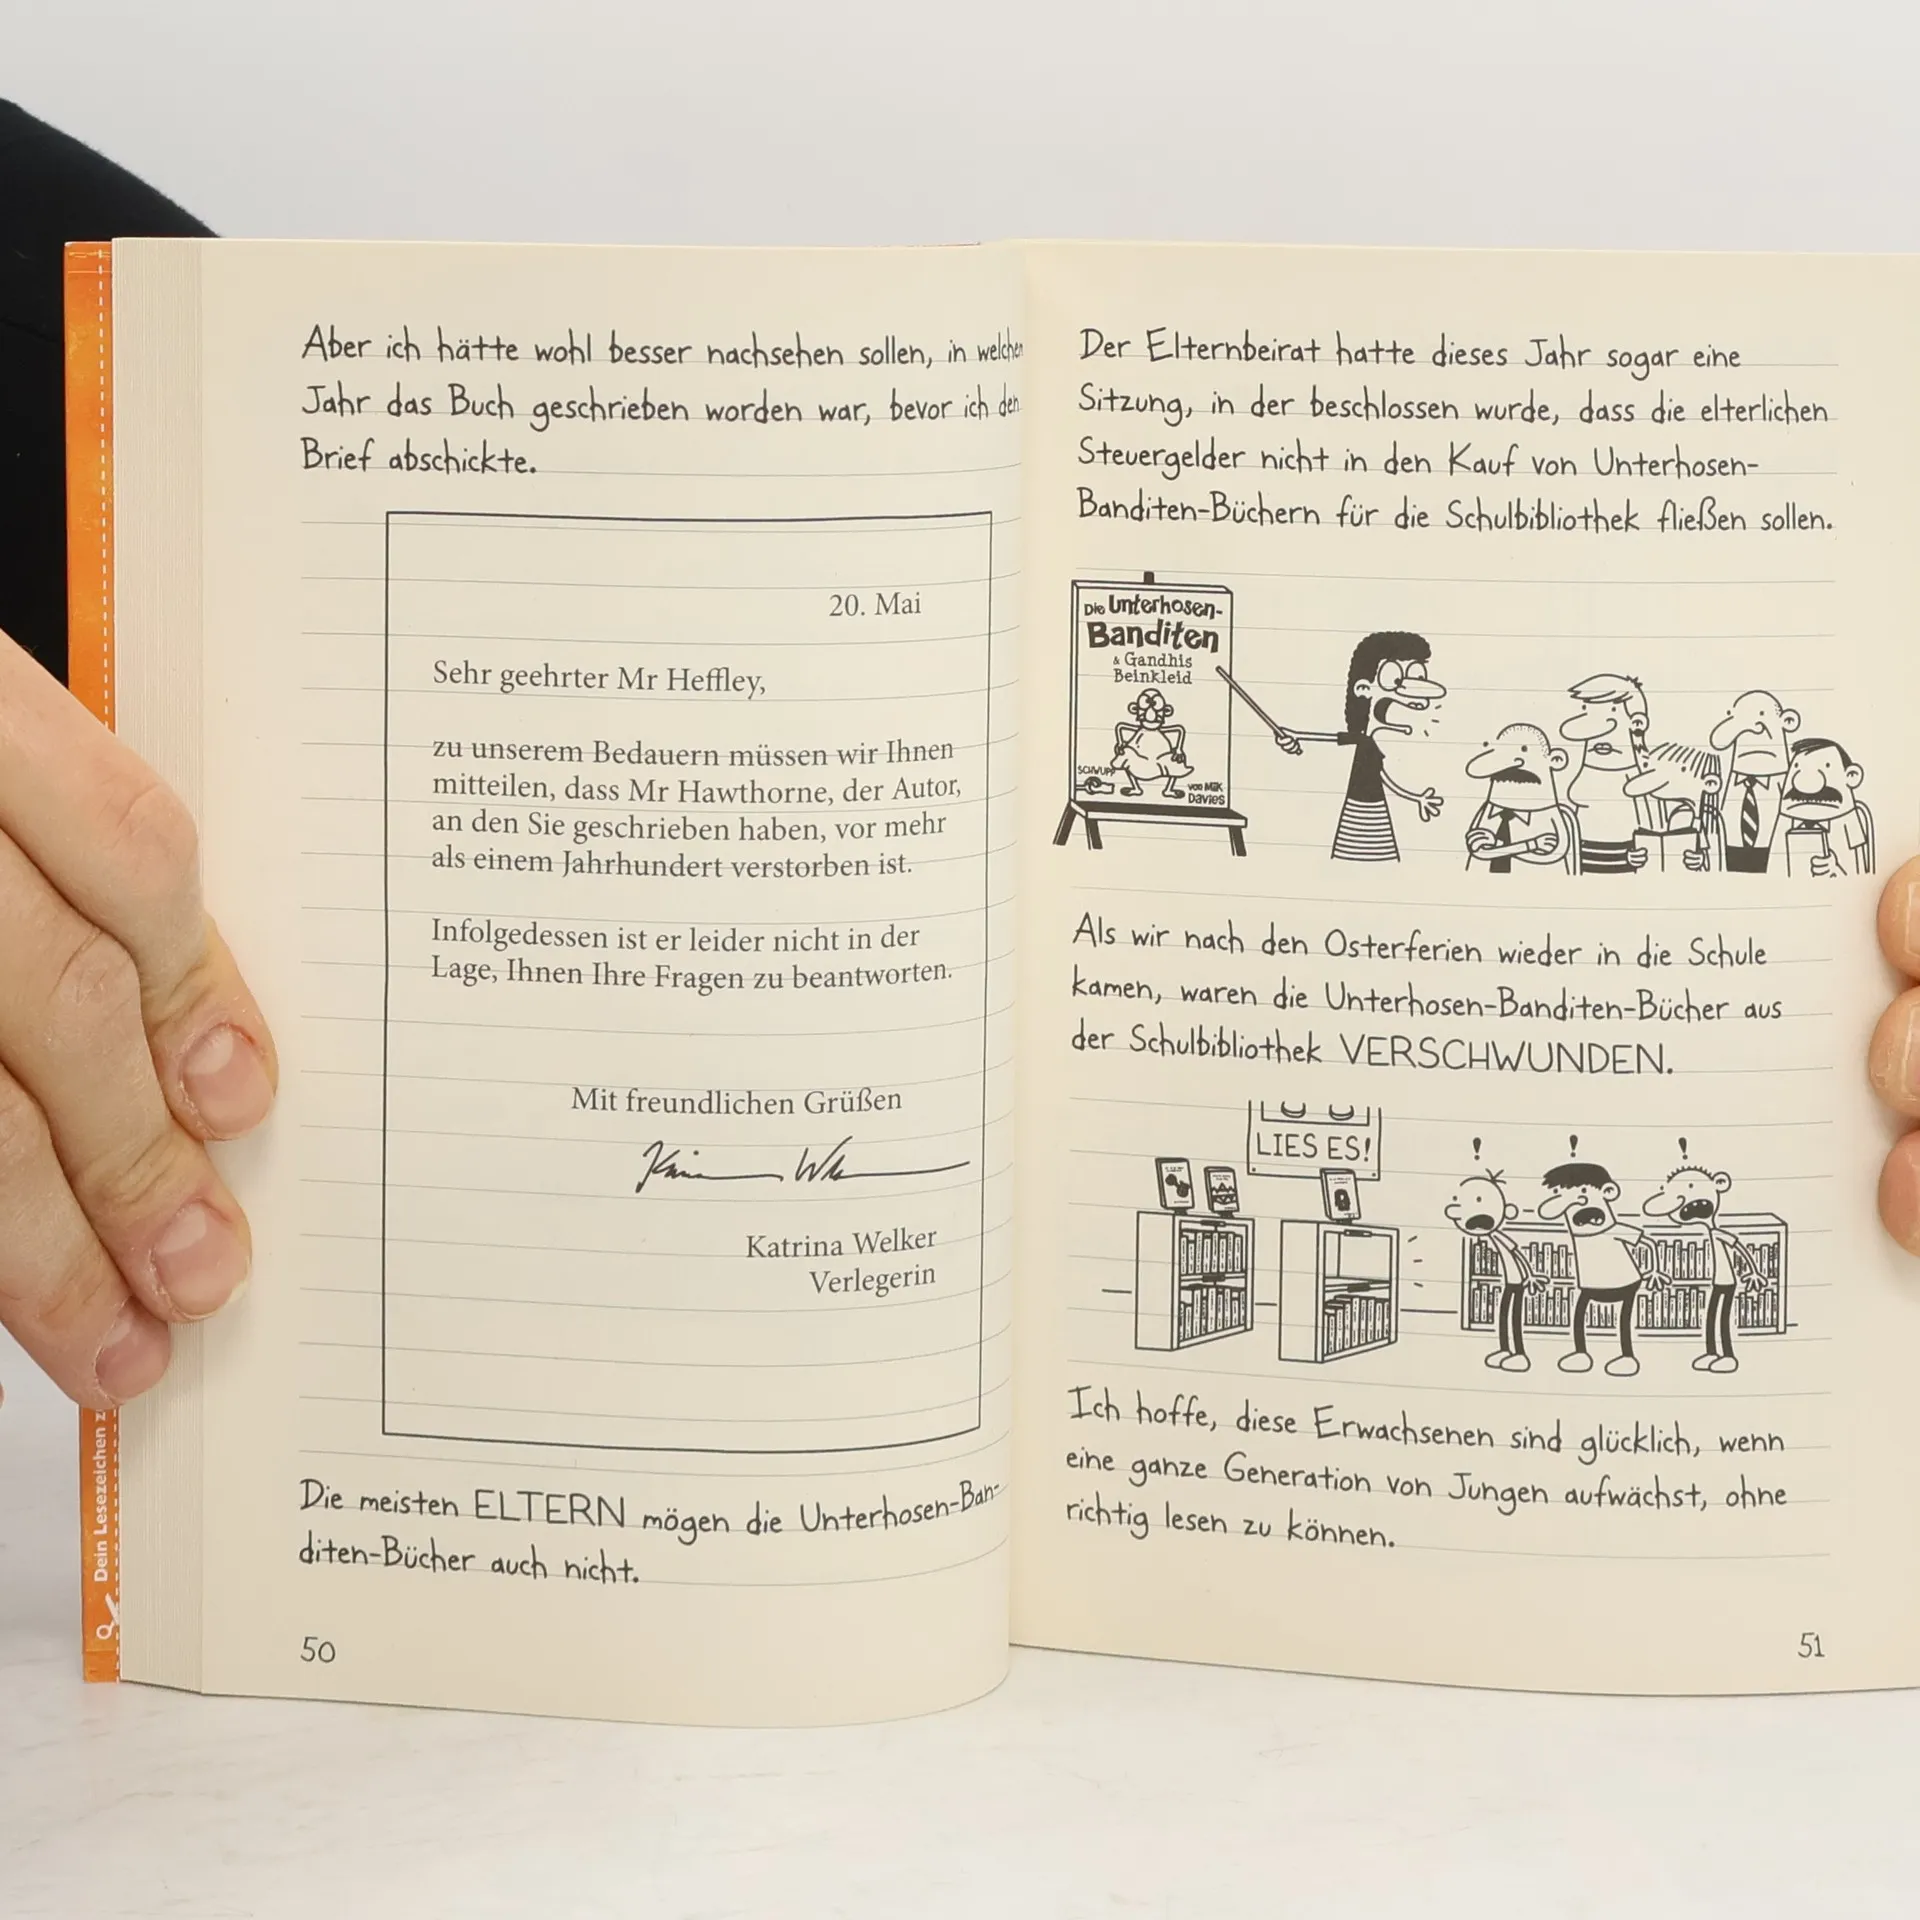 Aber ich hätte wohl besser nachsehen sollen, in welchem
Jahr das Buch geschrieben worden war, bevor ich den
Brief abschickte.
20. Mai
Sehr geehrter Mr Heffley,
zu unserem Bedauern müssen wir Ihnen
mitteilen, dass Mr Hawthorne, der Autor,
an den Sie geschrieben haben, vor mehr
als einem Jahrhundert verstorben ist.
Infolgedessen ist er leider nicht in der
Lage, Ihnen Ihre Fragen zu beantworten.
Mit freundlichen Grüßen
Katrina Welker
Verlegerin
Die meisten ELTERN mögen die Unterhosen-Ban-
diten-Bücher auch nicht.
50
Dein Lesezeichen
Der Elternbeirat hatte dieses Jahr sogar eine
Sitzung, in der beschlossen wurde, dass die elterlichen
Steuergelder nicht in den Kauf von Unterhosen-
Banditen-Büchern für die Schulbibliothek fließen sollen.
Die Unterhosen-
Banditen
& Gandhis
Beinkleid
SCHWUPP
von Mik
Davies
Als wir nach den Osterferien wieder in die Schule
kamen, waren die Unterhosen-Banditen-Bücher aus
der Schulbibliothek VERSCHWUNDEN.
LIES ES!
! ! !
Ich hoffe, diese Erwachsenen sind glücklich, wenn
eine ganze Generation von Jungen aufwächst, ohne
richtig lesen zu können.
51